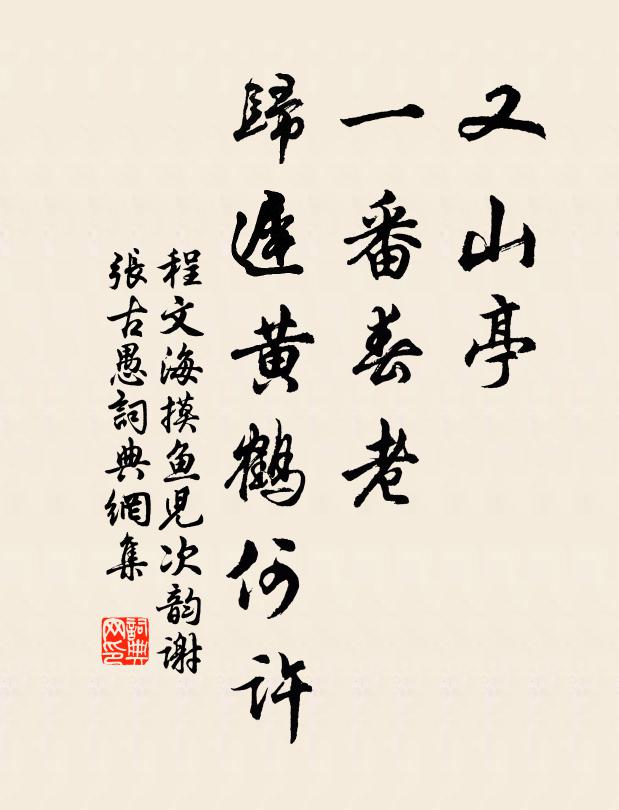 又山亭
一番春老
歸遲黃鶴何許
程文海摸鱼児次韵謝
張古愚詞典網集
詞典网印